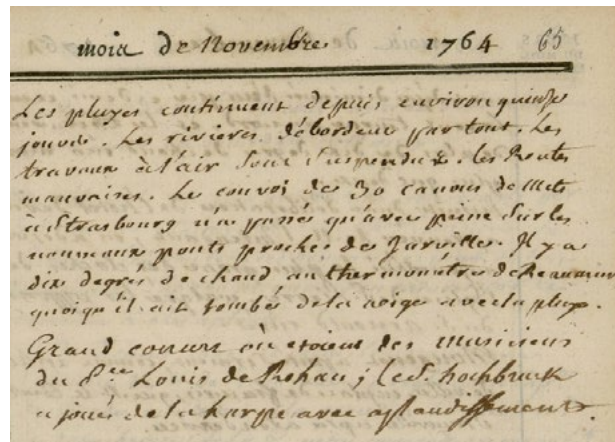 mois de Novembre 1764 65
Les pluyes continuent depuis environ quinze
jours. Les rivieres débordent par tout. Les
travaux à l'air sont suspendus. les Routes
mauvaises. Le convoi de 30 canons de Metz
à Strasbourg n'a passé qu'avec peine sur les
nouveaux ponts proches de Jarville. Il y a
dix degrés de chaud au thermométre de Reaumur
quoiqu'il ait tombé de la neige avec la pluye.
Grand concert où etoient des musiciens
du Pce Louis de Rohan; le S. hochbruck
a joué de la harpe avec aplaudissement